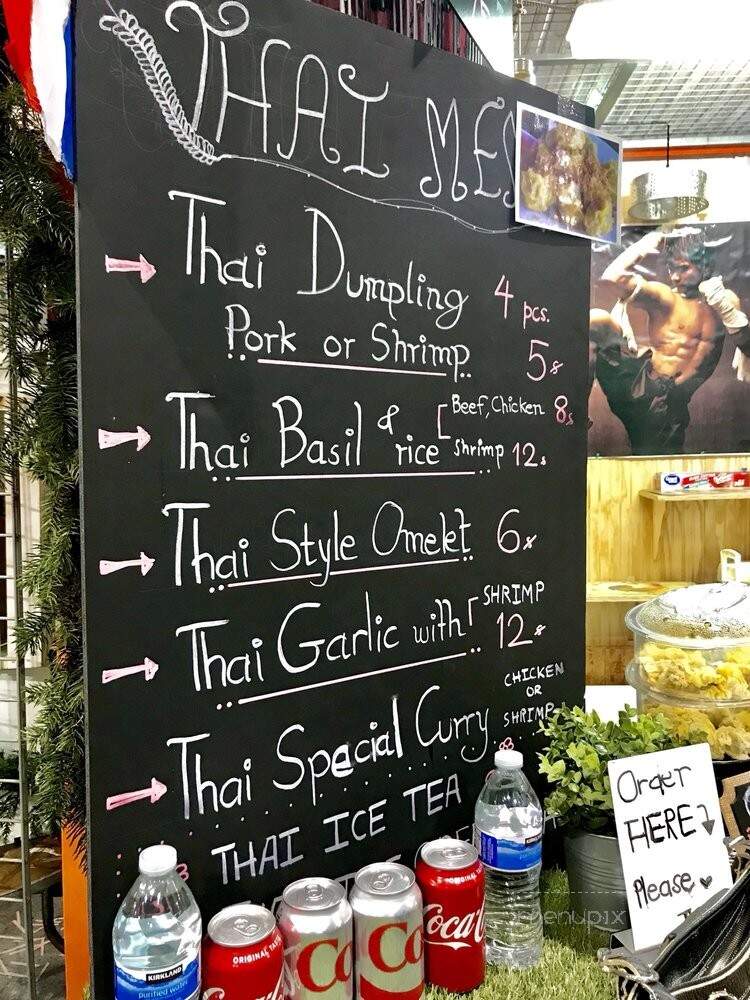 THAI MEN
Thai Dumpling 4 pcs.
Pork or Shrimp 5$
Thai Basil & rice
Beef, Chicken 8$
Shrimp 12$
Thai Style Omelet 6$
Thai Garlic with SHRIMP
12$
Thai Special Curry
CHICKEN
OR
SHRIMP
THAI ICE TEA
Order
HERE
Please
KIRKLAND
Purified water
ORIGINAL TASTE
Coca
Co
Co
ORIGINAL
Coca-C
menupix